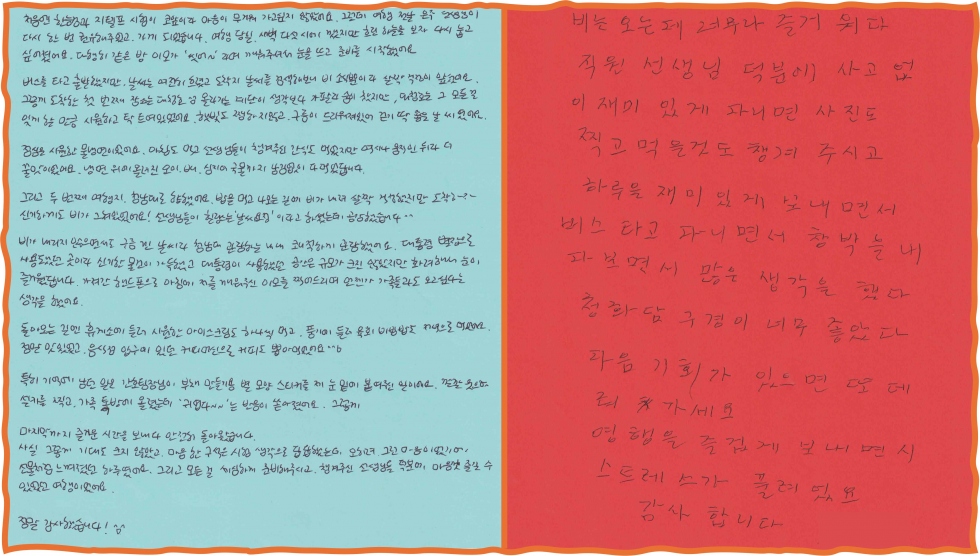 다시 한 번 권유해주셨고, 가게 되었습니다. 여행 당일, 새벽 다섯시에 깼지만 흐린 하늘을 보자 다시 눕고
싶어졌어요. 다행히 같은 방 이모가 깨워주셔서 눈을 뜨고 준비를 시작했어요.
버스를 타고 출발했지만, 날씨는 여전히 흐렸고 도착지 날씨를 검색해보니 비
그렇게 도착한 첫 번째 장소는 계단이 생각보다 가팔라 숨이 찼지만, 그 모든 걸
잊게 할 만큼 시원하고 탁 트여있었어요. 햇빛도 구름이 드리워져있어 걷기 딱 좋은 날씨였어요.
점심은 시원한 물냉면이었어요. 아침도 먹고 선생님들이 챙겨주신 간식도 먹었지만 역시나 움직인 뒤라 더
꿀맛이었어요. 냉면 위에 올려진 오이, 배, 심지어 국물까지 남김없이 다 먹었습니다.
그리고 두 번째 여행지, 청남대로 향했어요. 밥을 먹고 나오는 길에 비가 내려 살짝 걱정했지만 도착하니
신기하게도 비가 그쳐있었어요! 선생님들이 이라고 하셨는데 공감했습니다 ^^
비가 내리지 않았으면서도 구름 낀 날씨라 청남대 관람하는 내내 쾌적하게 관람했어요. 대통령 별장으로
사용했던 곳이라 신기한 물건이 가득했고 대통령이 사용했던 공간은 규모가 크진 않았지만 화려해서 눈이
즐거웠답니다. 가져간 핸드폰으로 아침에 저를 깨워주신 이모를 찍어드리며 언젠가 가족들과도 오고싶다는
생각을 했어요.
돌아오는 길엔 휴게소에 들러 시원한 아이스크림도 하나씩 먹고, 풍기에 들러 육회 비빔밥도 저녁으로 먹었어요.
정말 맛있었고, 음식점 입구에 있던 커피머신으로 커피도 뽑아먹었어요 ^^b
특히 기억에 남던 일은 간호팀장님이 부채 만들기용 별 모양 스티커를 제 눈 밑에 붙여주신 일이에요.
셀카를 찍고, 가족 톡방에 올렸는데 '귀엽다~~'는 반응이 쏟아졌어요. 그렇게
마지막까지 즐거운 시간을 보내다 안전히 돌아왔습니다.
사실 그렇게 기대도 크지 않았고, 마음 한 구석은 시험 생각으로 답답했는데, 오히려 그런 마음이었기에
선물처럼 느껴졌던 하루였어요. 그리고 모든 걸 세심하게 준비해주시고, 챙겨주신 선생님들 덕분에 마음껏 즐길 수
있었던 여행이었어요.
정말 감사했습니다! ^^
비는 오는데 너무나 즐거 웠다
직원 선생님 덕분에 사고 없
이 재미 있게 다니면 사진도
찍고 먹을것도 챙겨 주시고
하루을 재미 있게 보내 면서
버스 타고 다니면서 창박을 내
다 보면서 많은 생각을 했다
청화담 구경이 너무 좋았다
다음 기회가 있으면 또 데
려 가세요
여행을 즐겁게 보내면 서
스트레스가 풀려 있요
감사 합니다